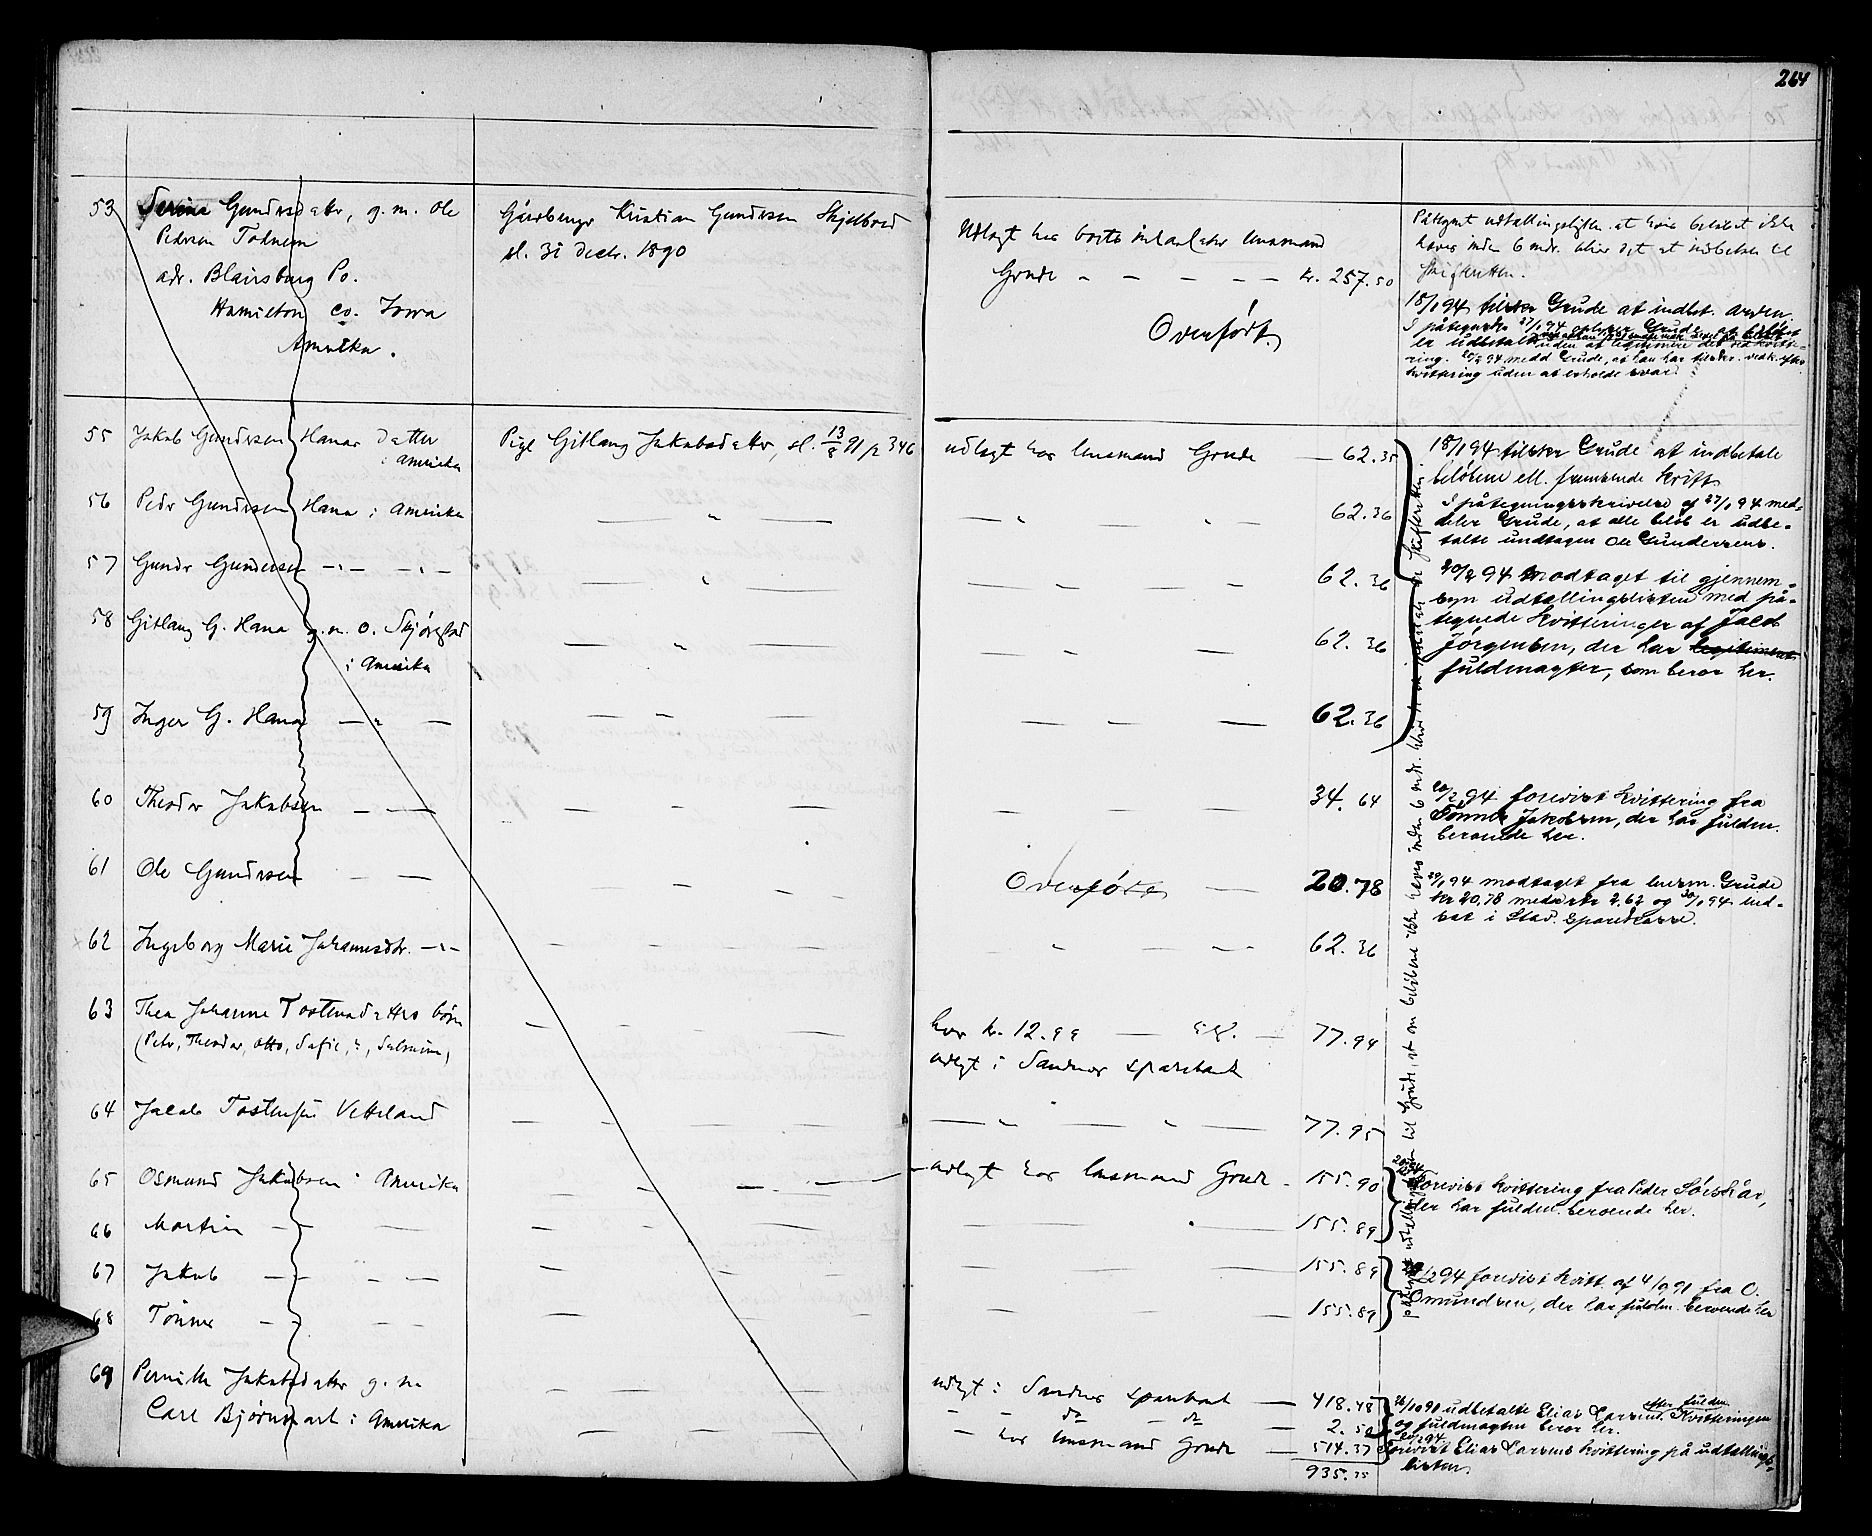 264
53 Serine Gundersdatter, g.m. Ole
Pedersen Todnem
adr. Blairsburg Po.
Hamilton Co. Iowa
Amerika.
Gårdbruger Kristian Gundersen Skjelbred
d. 31 Decbr. 1890
Udlagt hos lensmand
Grude - - - - - kr. 257.50
Overført.
Påtegnet udtallingslisten at hvis beløbet ikke
haves inden 6 mdr. bliver det at indbetale til
skifteretten.
18/1 94 tilskr. Grude at indbet. arven.
I påtegnskr. 27/1 94 oplyser Grude, at beløbet
er udbetalt uden at legitimere det ved kvitte-
ring. 20/2 94 medd Grude, at han har tilskr. vedk. efter
kvittering uden at erholde svar.
55 Jakob Gundersen Hanas Datter
i Amerika
Pige Gitlaug Jakobsdatter, d. 13/8 91 p 346
udlagt hos lensmand Grude — 62.35
18/1 94 tilskr Grude at indbetale
beløbene ell. fremsende kvitt.
56 Peder Gundersen Hana i Amerika
— " —
— " — " — 62.36
I påtegningsskrivelse af 27/1 94 med-
deler Grude, at alle beløb er udbe-
talte undtagen Ole Gundersens.
57 Gunder Gundersen -"- -"-
— " —
— " — 62.36
20/2 94 Modtaget til gjennem-
syn udtællingslisten med på-
tegnede kvitteringer af Jakob
Jørgensen, der har legitimeret
fuldmagter, som beror her.
58 Gitlaug G. Hana g.m. O. Skjørestad
i Amerika
— " —
— " — 62.36
59 Inger G. Hana — " —
— — —
— — — 62.36
60 Theodor Jakobsen — —
— — —
— — — 34.64
20/2 94 forevist kvittering fra
Tønnes Jakobsen, der har fuldm.
beroende her.
61 Ole Gundersen — —
— — —
Overført — 20.78
29/1 94 modtaget fra lensm. Grude
kr 20,78 med 2,62 og 30/1 94 ind-
sat i Stav. Sparekasse.
62 Ingeborg Marie Johannesdtr. -"-
— — —
" — — 62.36
63 Thea Johanne Tostensdatters børn
(Peder, Theodor, Otto, Sofie, Salmine)
— — —
hver kr. 12.99 — — 77.94
udlagt i Sandnes sparebank
64 Jakob Tostensen Vetteland
— — —
— " — " — 77.95
65 Osmund Jakobsen i Amerika
— — —
udlagt hos lensmand Grude - 155.90
Forevist kvittering fra Peder Sørskår,
der har fuldm. beroende her.
66 Martin — —
— — —
— — 155.89
67 Jakob — — —
— — —
— — 155.89
20/2 94 forevist kvitt af 4/9 91 fra O.
Omundsen, der har fuldm. beroende her
68 Tønnes — — —
— — —
— — 155.89
69 Pernille Jakobsdatter g. m.
Carl Bjørn i Amerika
— — —
udlagt i Sandnes sparebank — 418.48
— — do — do — 2.50
— hos lensmand Grude — 514.37
935.35
26/10 91 udbetalte Elias Larsen efter fuldm. Kvitteringen
og fuldmagten beror her.
20/2 94
Forevist Elias Larsens kvittering på udtællings-
listen.